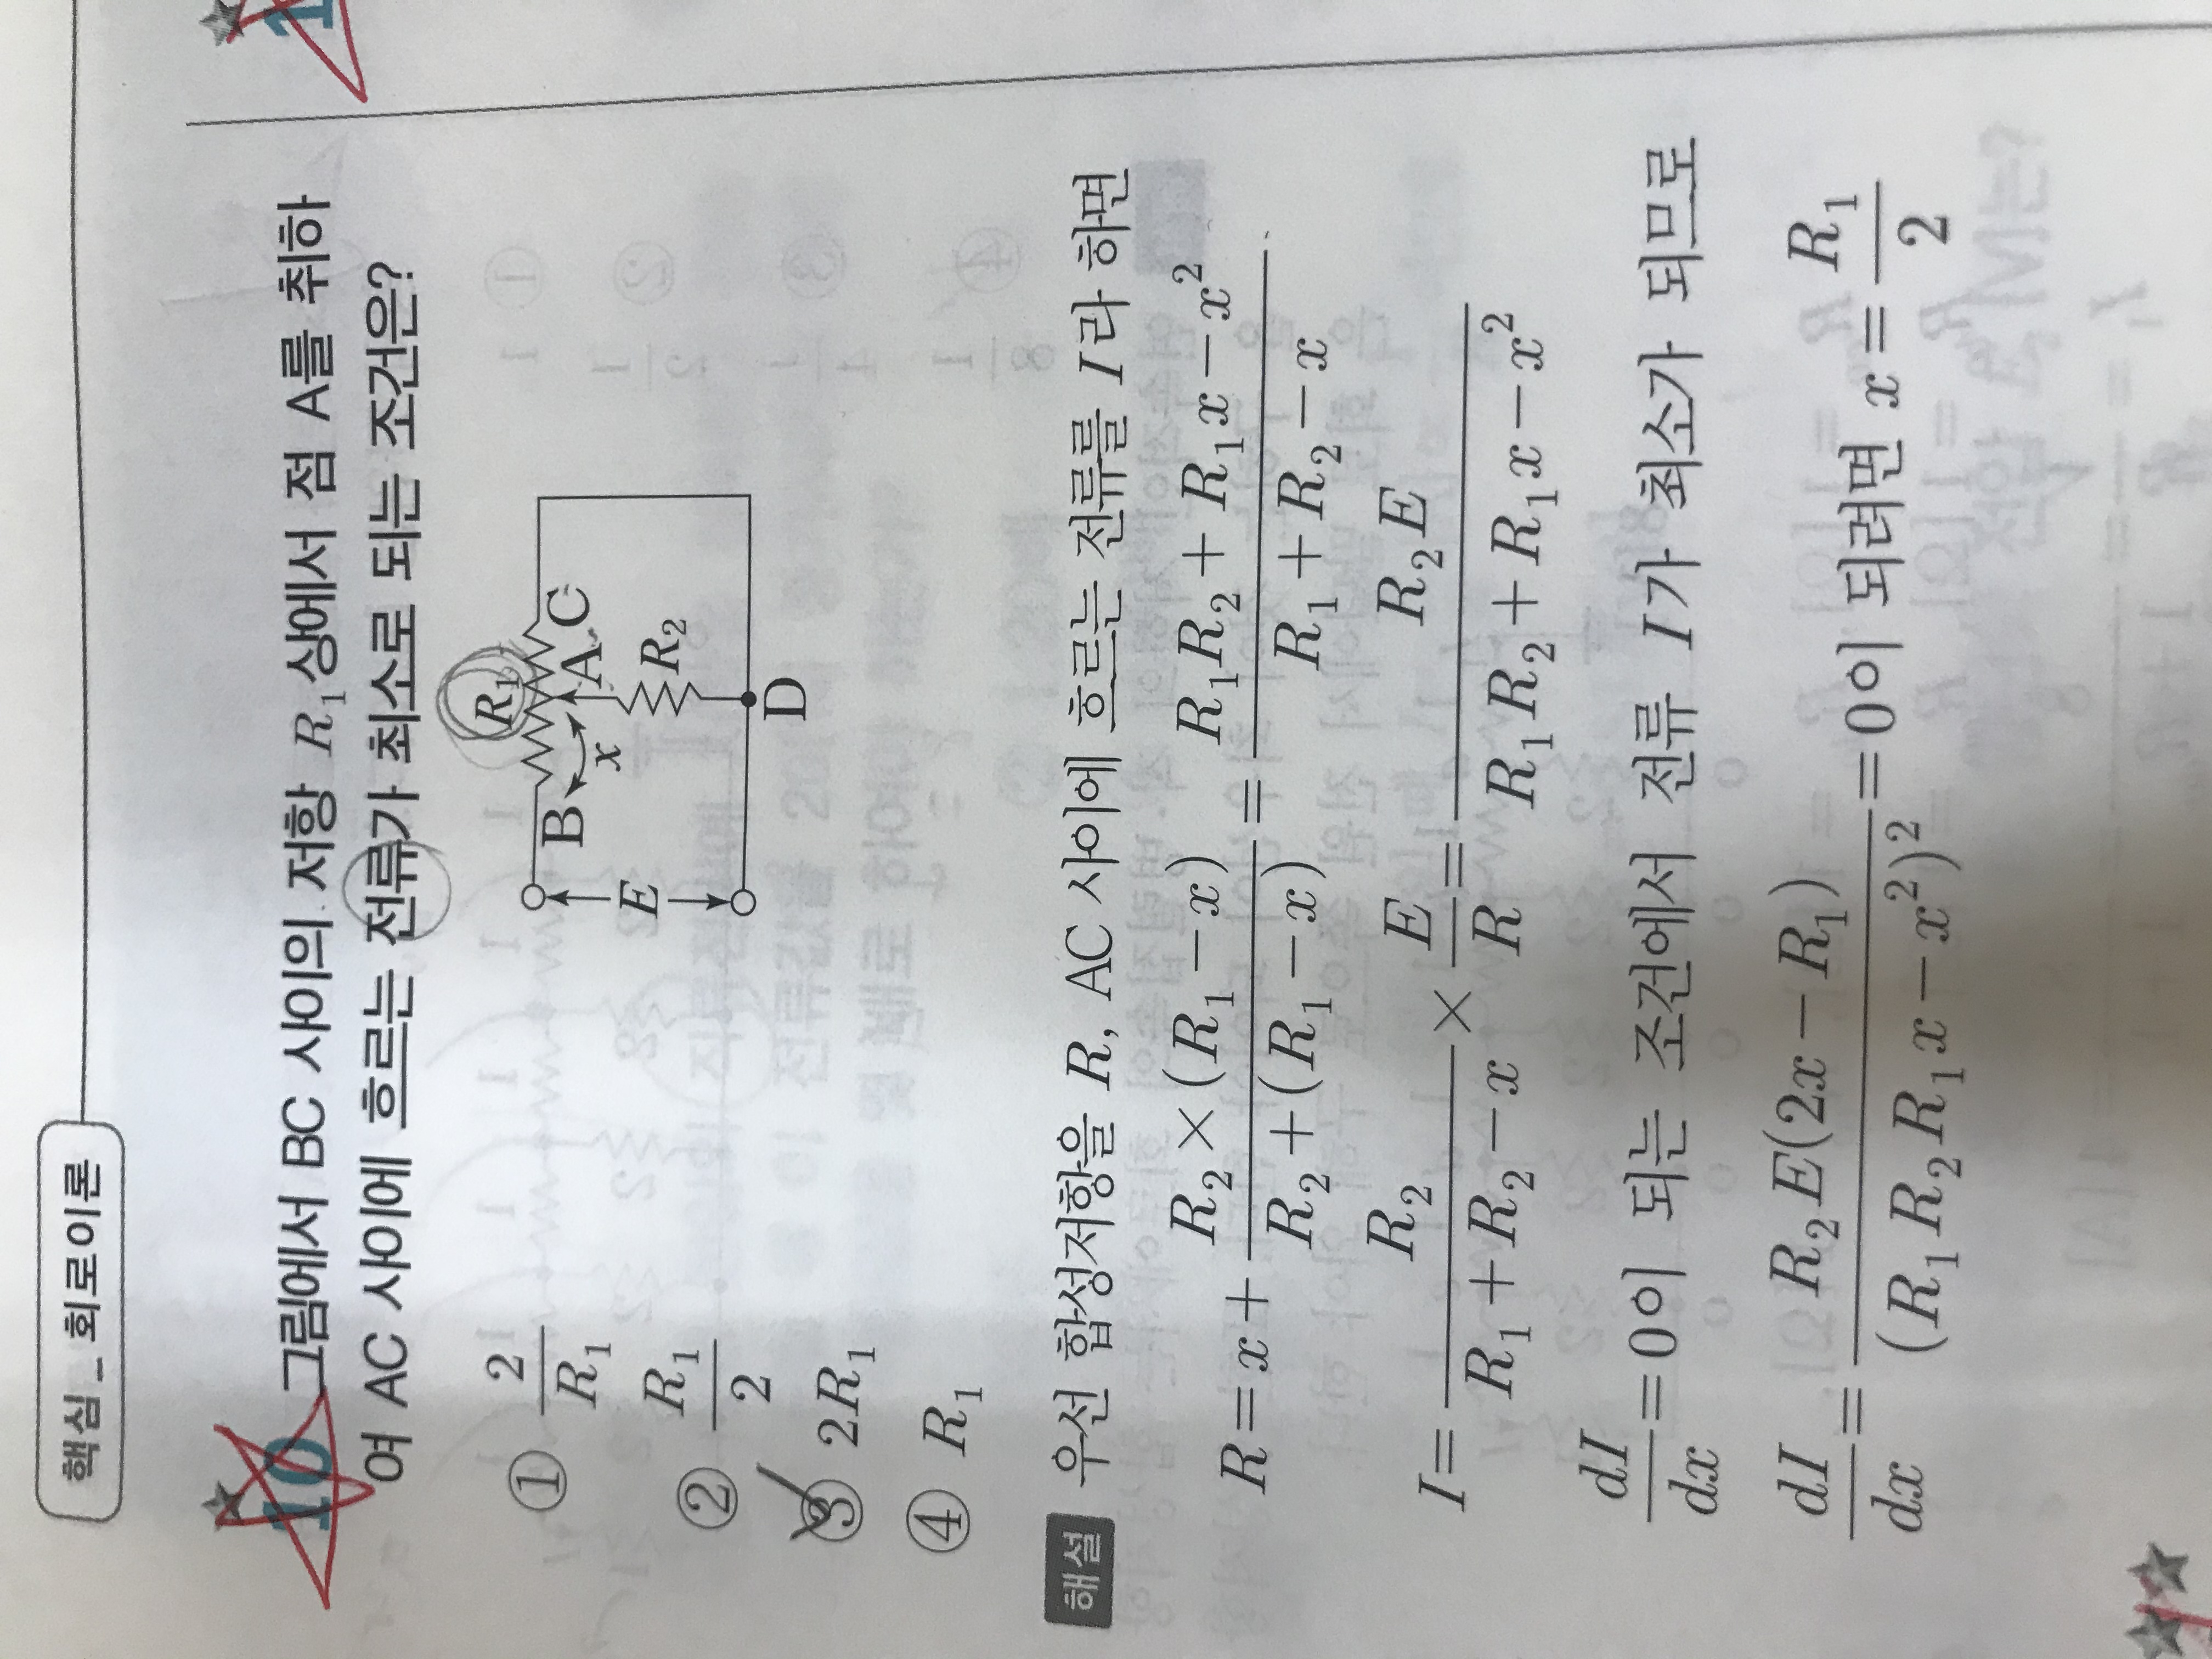 핵심 _ 회로이론
10 그림에서 BC 사이의 저항 R₁상에서 점 A를 취하
여 AC 사이에 흐르는 전류가 최소로 되는 조건은?
① 2/R₁
② R₁/2
③ 2R₁
④ R₁
R₁
B
A
C
x
R₂
E
D
해설 우선 합성저항을 R, AC 사이에 흐르는 전류를 I라 하면
R = x + R₂×(R₁−x)/R₂+(R₁−x) = R₁R₂+R₁x−x²/R₁+R₂−x
I = R₂/R₁+R₂−x × E/R = R₂E/R₁R₂+R₁x−x²
dI/dx = 0이 되는 조건에서 전류 I가 최소가 되므로
dI/dx = R₂E(2x−R₁)/(R₁R₂R₁x−x²)² = 0이 되려면 x = R₁/2